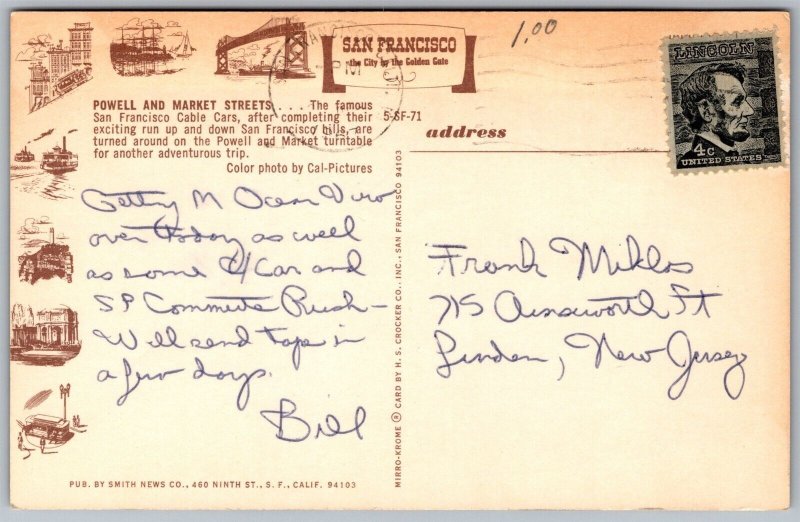 1.00
SAN FRANCISCO
the City by the Golden Gate
LINCOLN
4c
UNITED STATES
POWELL AND MARKET STREETS . . . The famous
San Francisco Cable Cars, after completing their
exciting run up and down San Francisco hills, are
turned around on the Powell and Market turntable
for another adventurous trip.
Color photo by Cal-Pictures
5-SF-71
address
Getty M Ocean
over today as well
as some C/Car and
SP Commute Rush—
Will send tape in
a few days.
Bill
Frank Miklos
715 Ainsworth St
Linden, New Jersey
MIRRO-KROME ® CARD BY H. S. CROCKER CO., INC., SAN FRANCISCO 94103
PUB. BY SMITH NEWS CO., 460 NINTH ST., S. F., CALIF. 94103